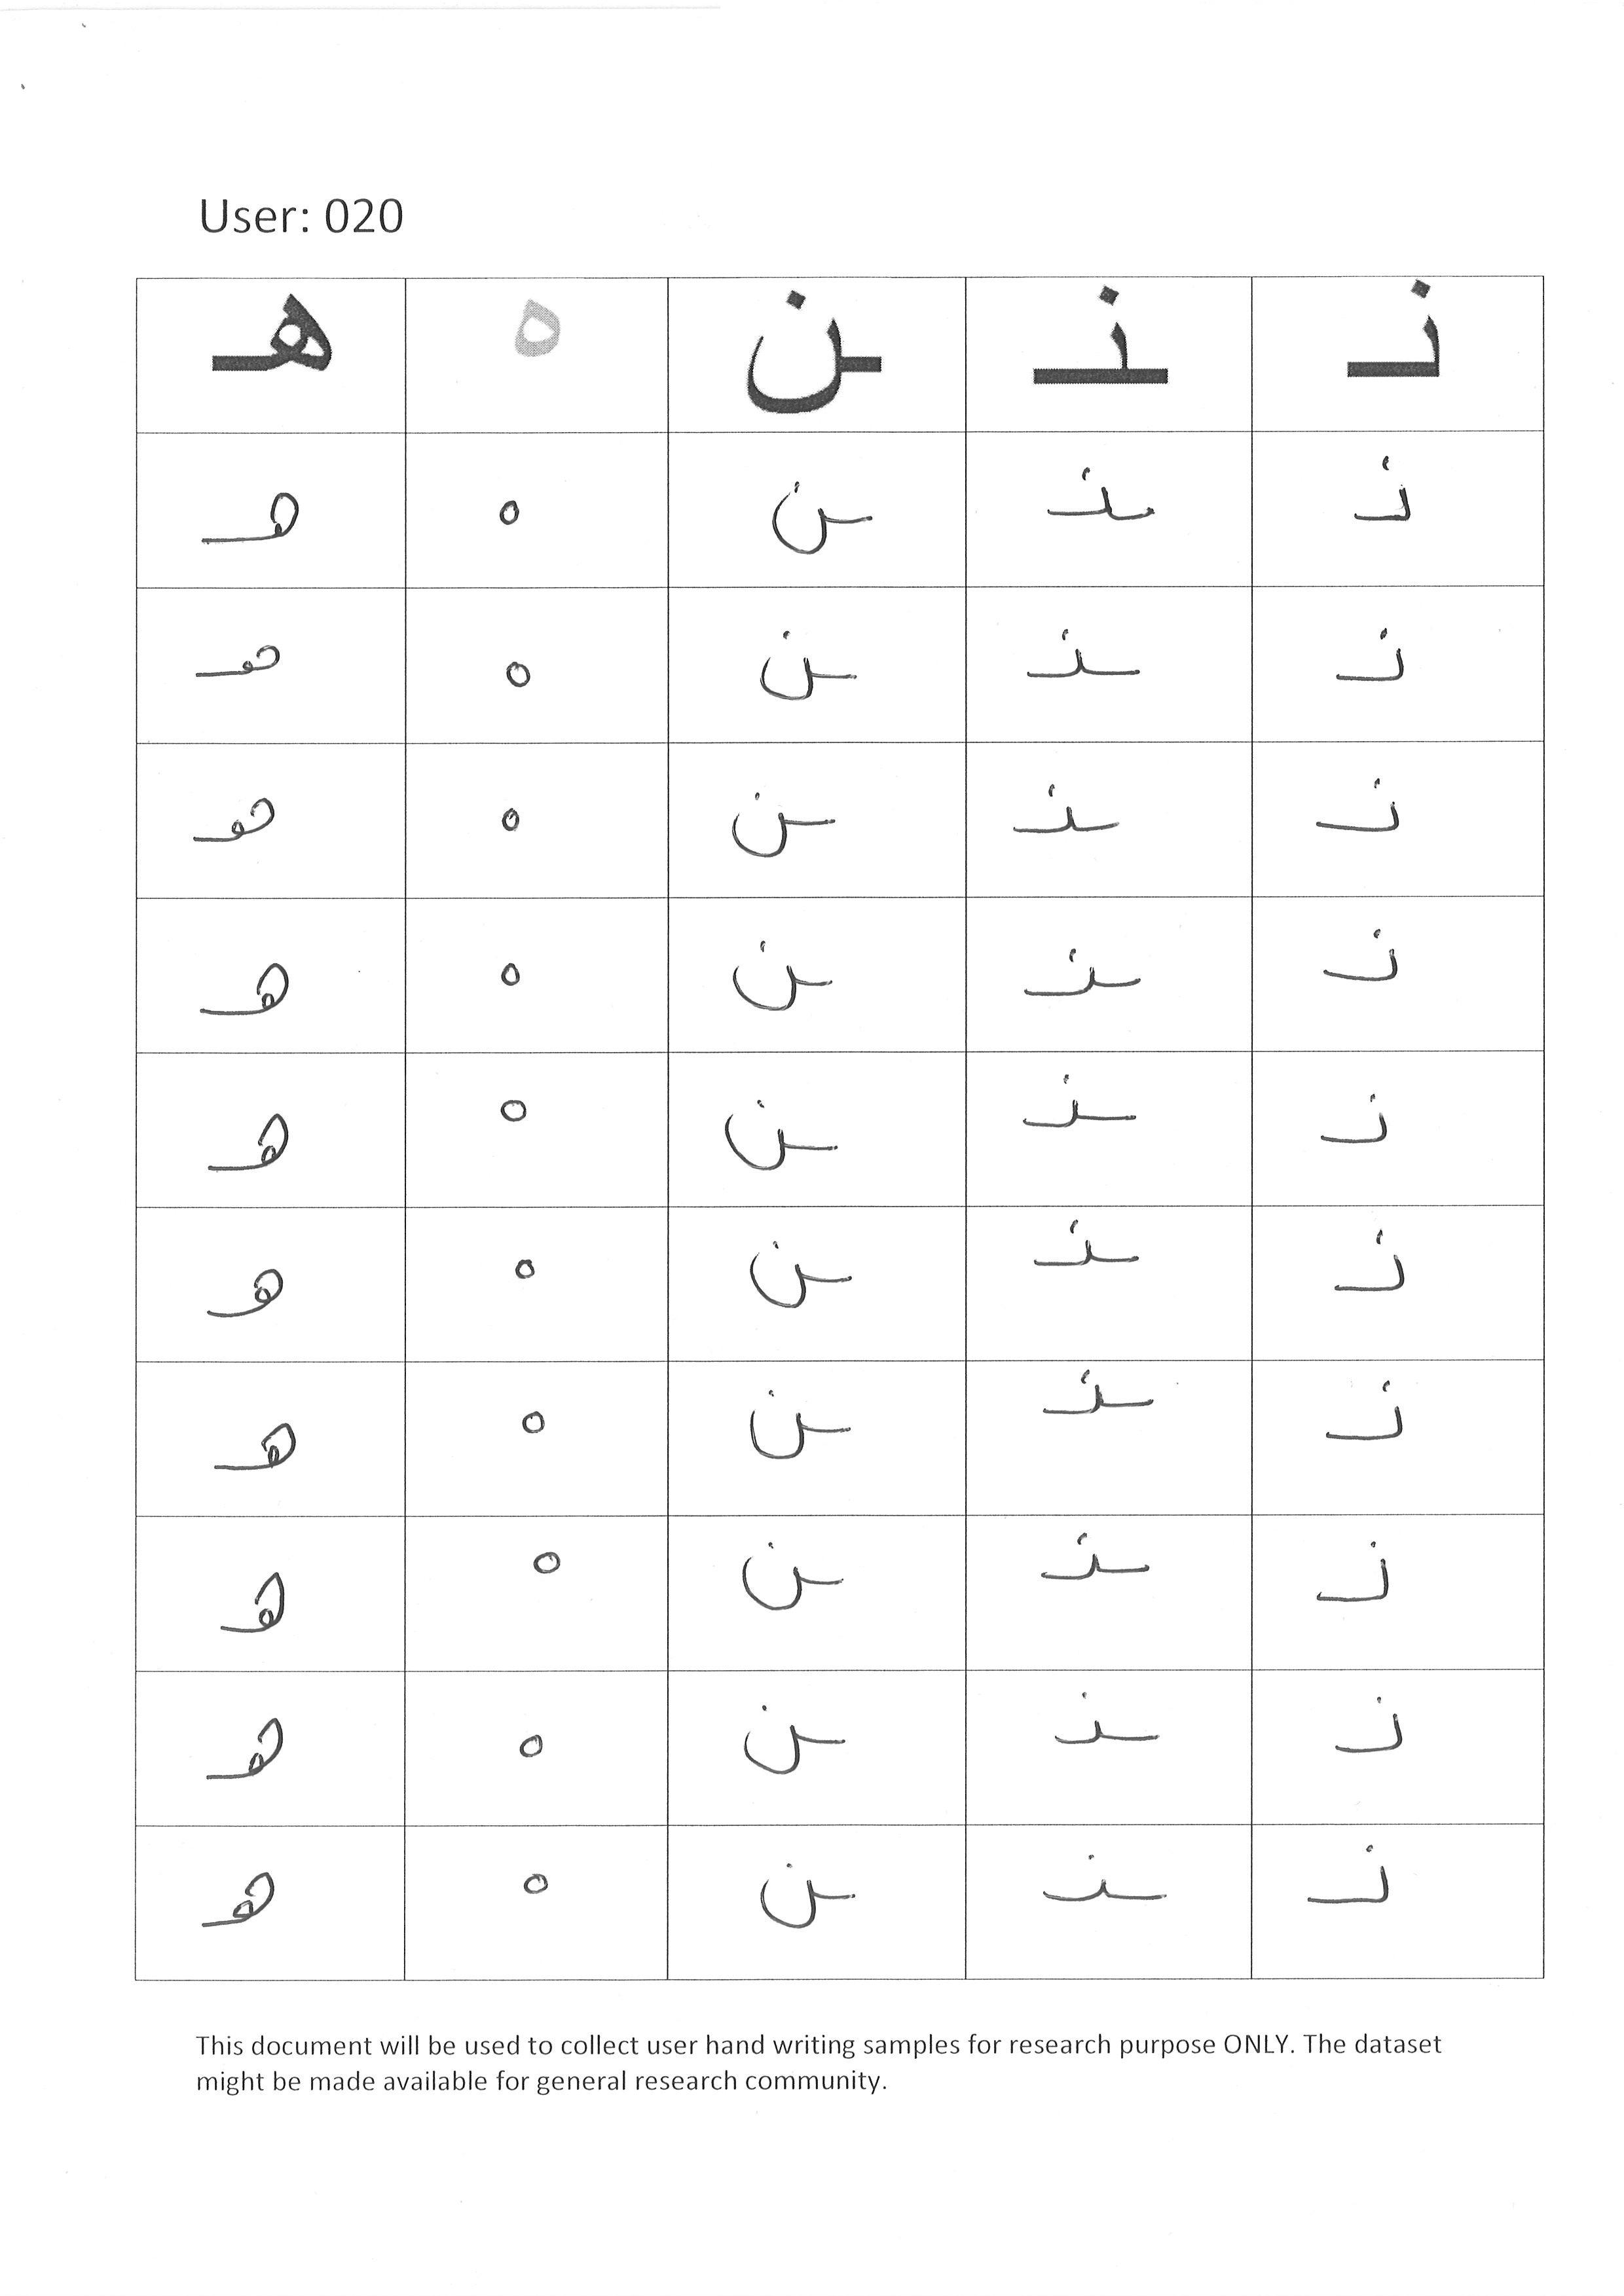 User: 020
نـ ـنـ ـن ه هـ
نـ ـنـ ـن ه هـ
نـ ـنـ ـن ه هـ
نـ ـنـ ـن ه هـ
نـ ـنـ ـن ه هـ
نـ ـنـ ـن ه هـ
نـ ـنـ ـن ه هـ
نـ ـنـ ـن ه هـ
نـ ـنـ ـن ه هـ
نـ ـنـ ـن ه هـ
نـ ـنـ ـن ه هـ
This document will be used to collect user hand writing samples for research purpose ONLY. The dataset
might be made available for general research community.